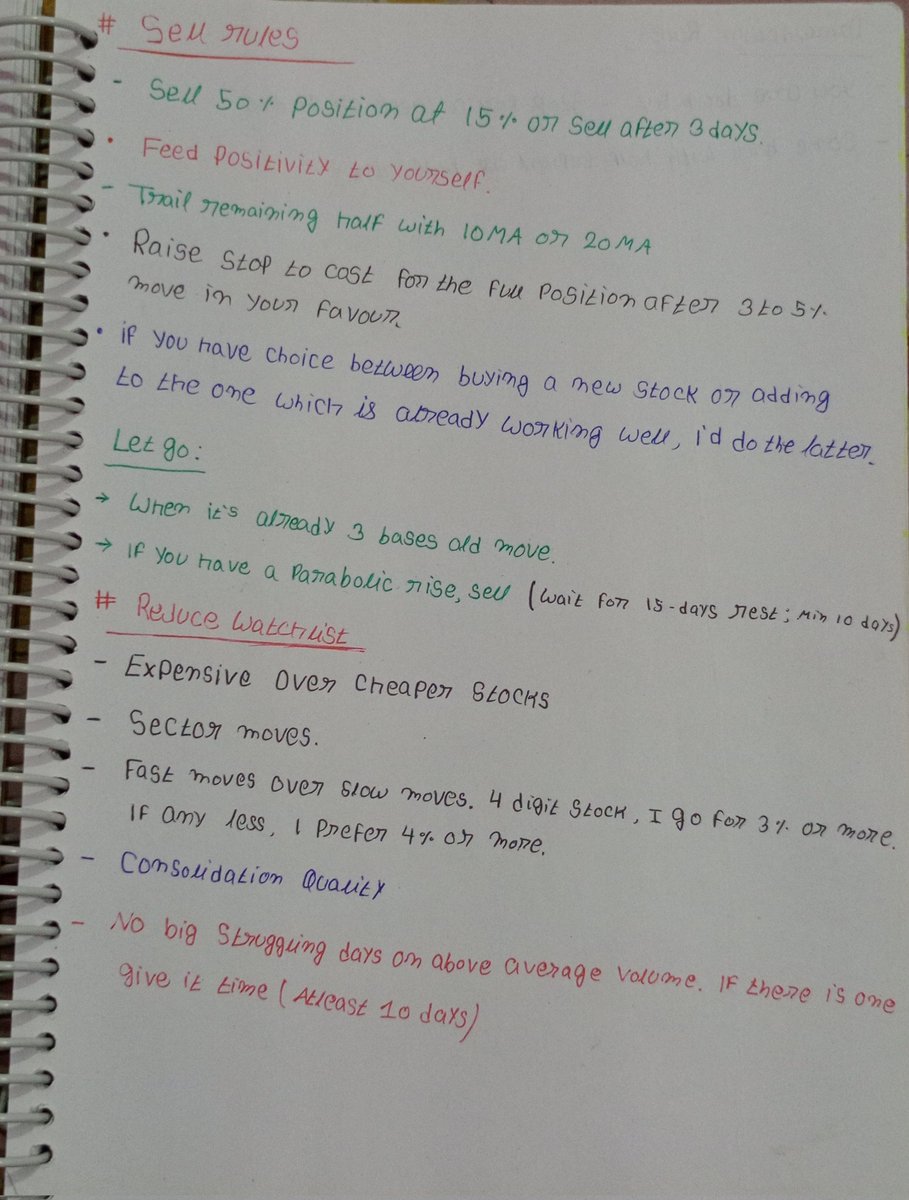 # Sell rules
- Sell 50% Position at 15% or Sell after 3 days.
• Feed Positivity to yourself.
- Trail remaining half with 10MA or 20MA
• Raise Stop to cost for the full Position after 3 to 5%
move in your favour.
• if you have choice between buying a new stock or adding
to the one which is already working well, i'd do the latter.
Let go:
→ When it's already 3 bases old move.
→ If you have a Parabolic rise, sell (wait for 15-days rest; Min 10 days)
# Reduce Watchlist
- Expensive Over Cheaper Stocks
- Sector moves.
- Fast moves over slow moves. 4 digit Stock, I go for 3% or more.
If any less, I Prefer 4% or more.
- Consolidation Quality
- No big Struggling days on above average volume. If there is one
give it time (Atleast 10 days)